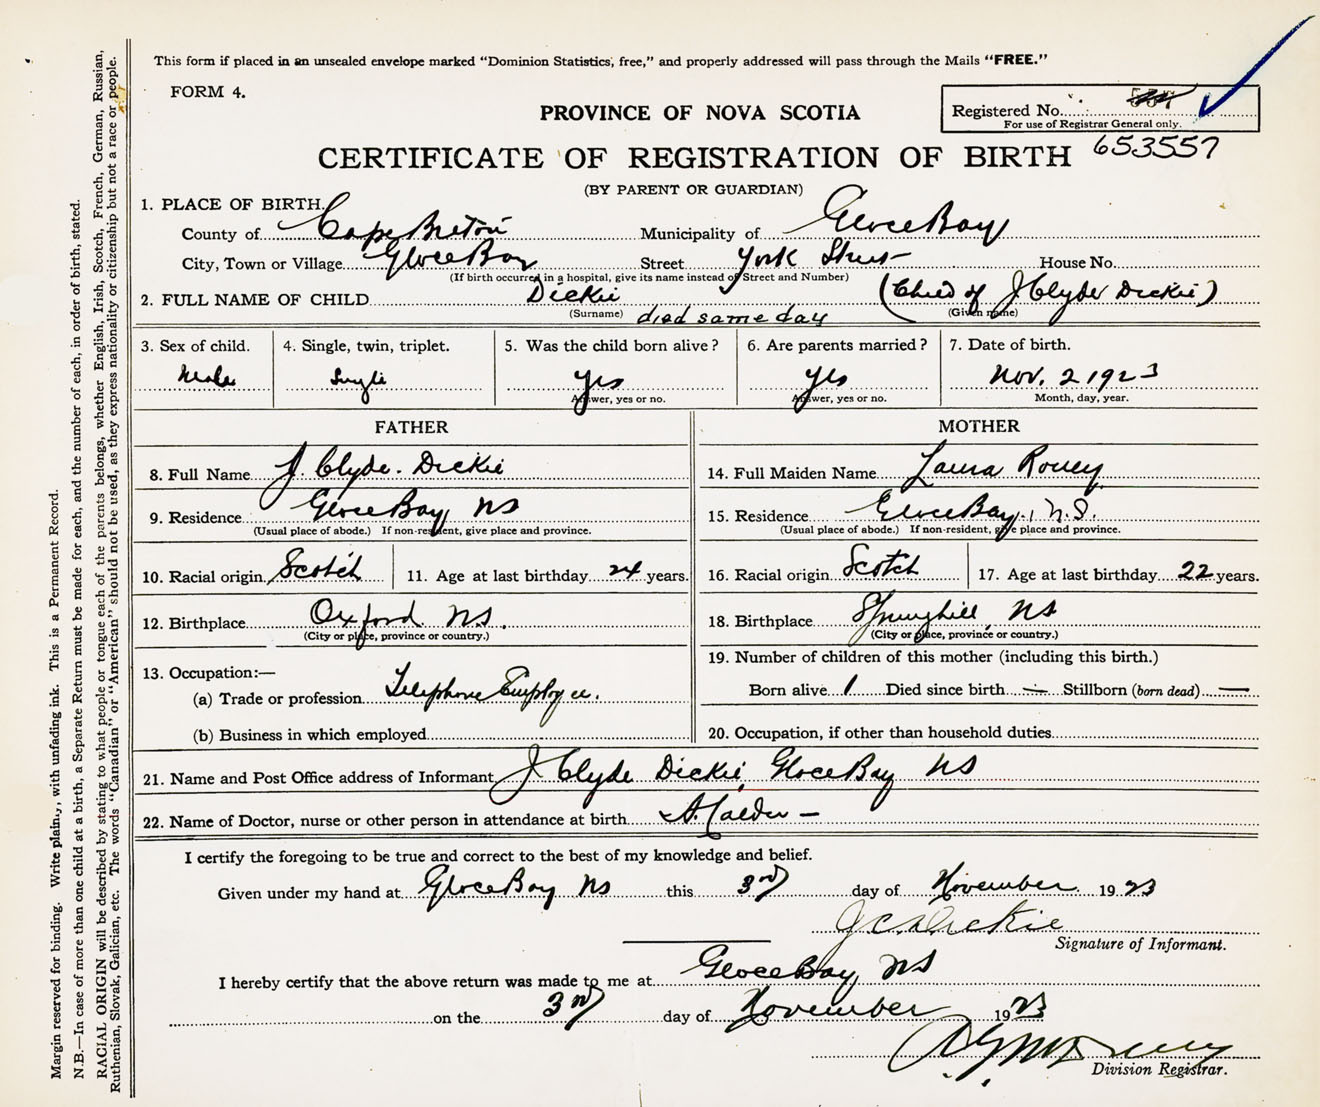 This form if placed in an unsealed envelope marked "Dominion Statistics, free," and properly addressed will pass through the Mails "FREE."
FORM 4.
PROVINCE OF NOVA SCOTIA
Registered No.
For use of Registrar General only.
653557
CERTIFICATE OF REGISTRATION OF BIRTH
(BY PARENT OR GUARDIAN)
1. PLACE OF BIRTH.
County of Cape Breton Municipality of Glace Bay
City, Town or Village Glace Bay Street York Street House No.
(If birth occurred in a hospital, give its name instead of Street and Number)
2. FULL NAME OF CHILD Dickie (Child of J Clyde Dickie)
(Surname) died same day (Given name)
3. Sex of child. 4. Single, twin, triplet. 5. Was the child born alive? 6. Are parents married? 7. Date of birth.
Male Single yes yes Nov. 2 1923
Answer, yes or no. Answer, yes or no. Month, day, year.
FATHER MOTHER
8. Full Name J. Clyde. Dickie 14. Full Maiden Name Laura
9. Residence Glace Bay NS 15. Residence Glace Bay, N.S.
(Usual place of abode.) If non-resident, give place and province. (Usual place of abode.) If non-resident, give place and province.
10. Racial origin. Scotch 11. Age at last birthday 24 years. 16. Racial origin Scotch 17. Age at last birthday 22 years.
12. Birthplace Oxford NS. 18. Birthplace Springhill, NS
(City or place, province or country.) (City or place, province or country.)
13. Occupation:— 19. Number of children of this mother (including this birth.)
(a) Trade or profession Telephone Employee. Born alive 1 Died since birth — Stillborn (born dead) —
(b) Business in which employed 20. Occupation, if other than household duties
21. Name and Post Office address of Informant J Clyde Dickie, Glace Bay NS
22. Name of Doctor, nurse or other person in attendance at birth A. Calder —
I certify the foregoing to be true and correct to the best of my knowledge and belief.
Given under my hand at Glace Bay NS this 3rd day of November 1923
J C Dickie
Signature of Informant.
I hereby certify that the above return was made to me at Glace Bay NS
on the 3rd day of November 1923
Division Registrar.
Margin reserved for binding. Write plain., with unfading ink. This is a Permanent Record.
N.B.—In case of more than one child at a birth, a Separate Return must be made for each, and the number of each, in order of birth, stated.
RACIAL ORIGIN will be described by stating to what people or tongue each of the parents belongs, whether English, Irish, Scotch, French, German, Russian,
Ruthenian, Slovak, Galician, etc. The words "Canadian" or "American" should not be used, as they express nationality or citizenship but not a race or people.